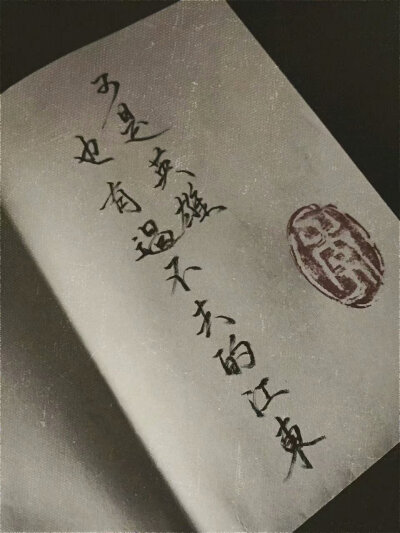 于是英雄
也有過不去的江東